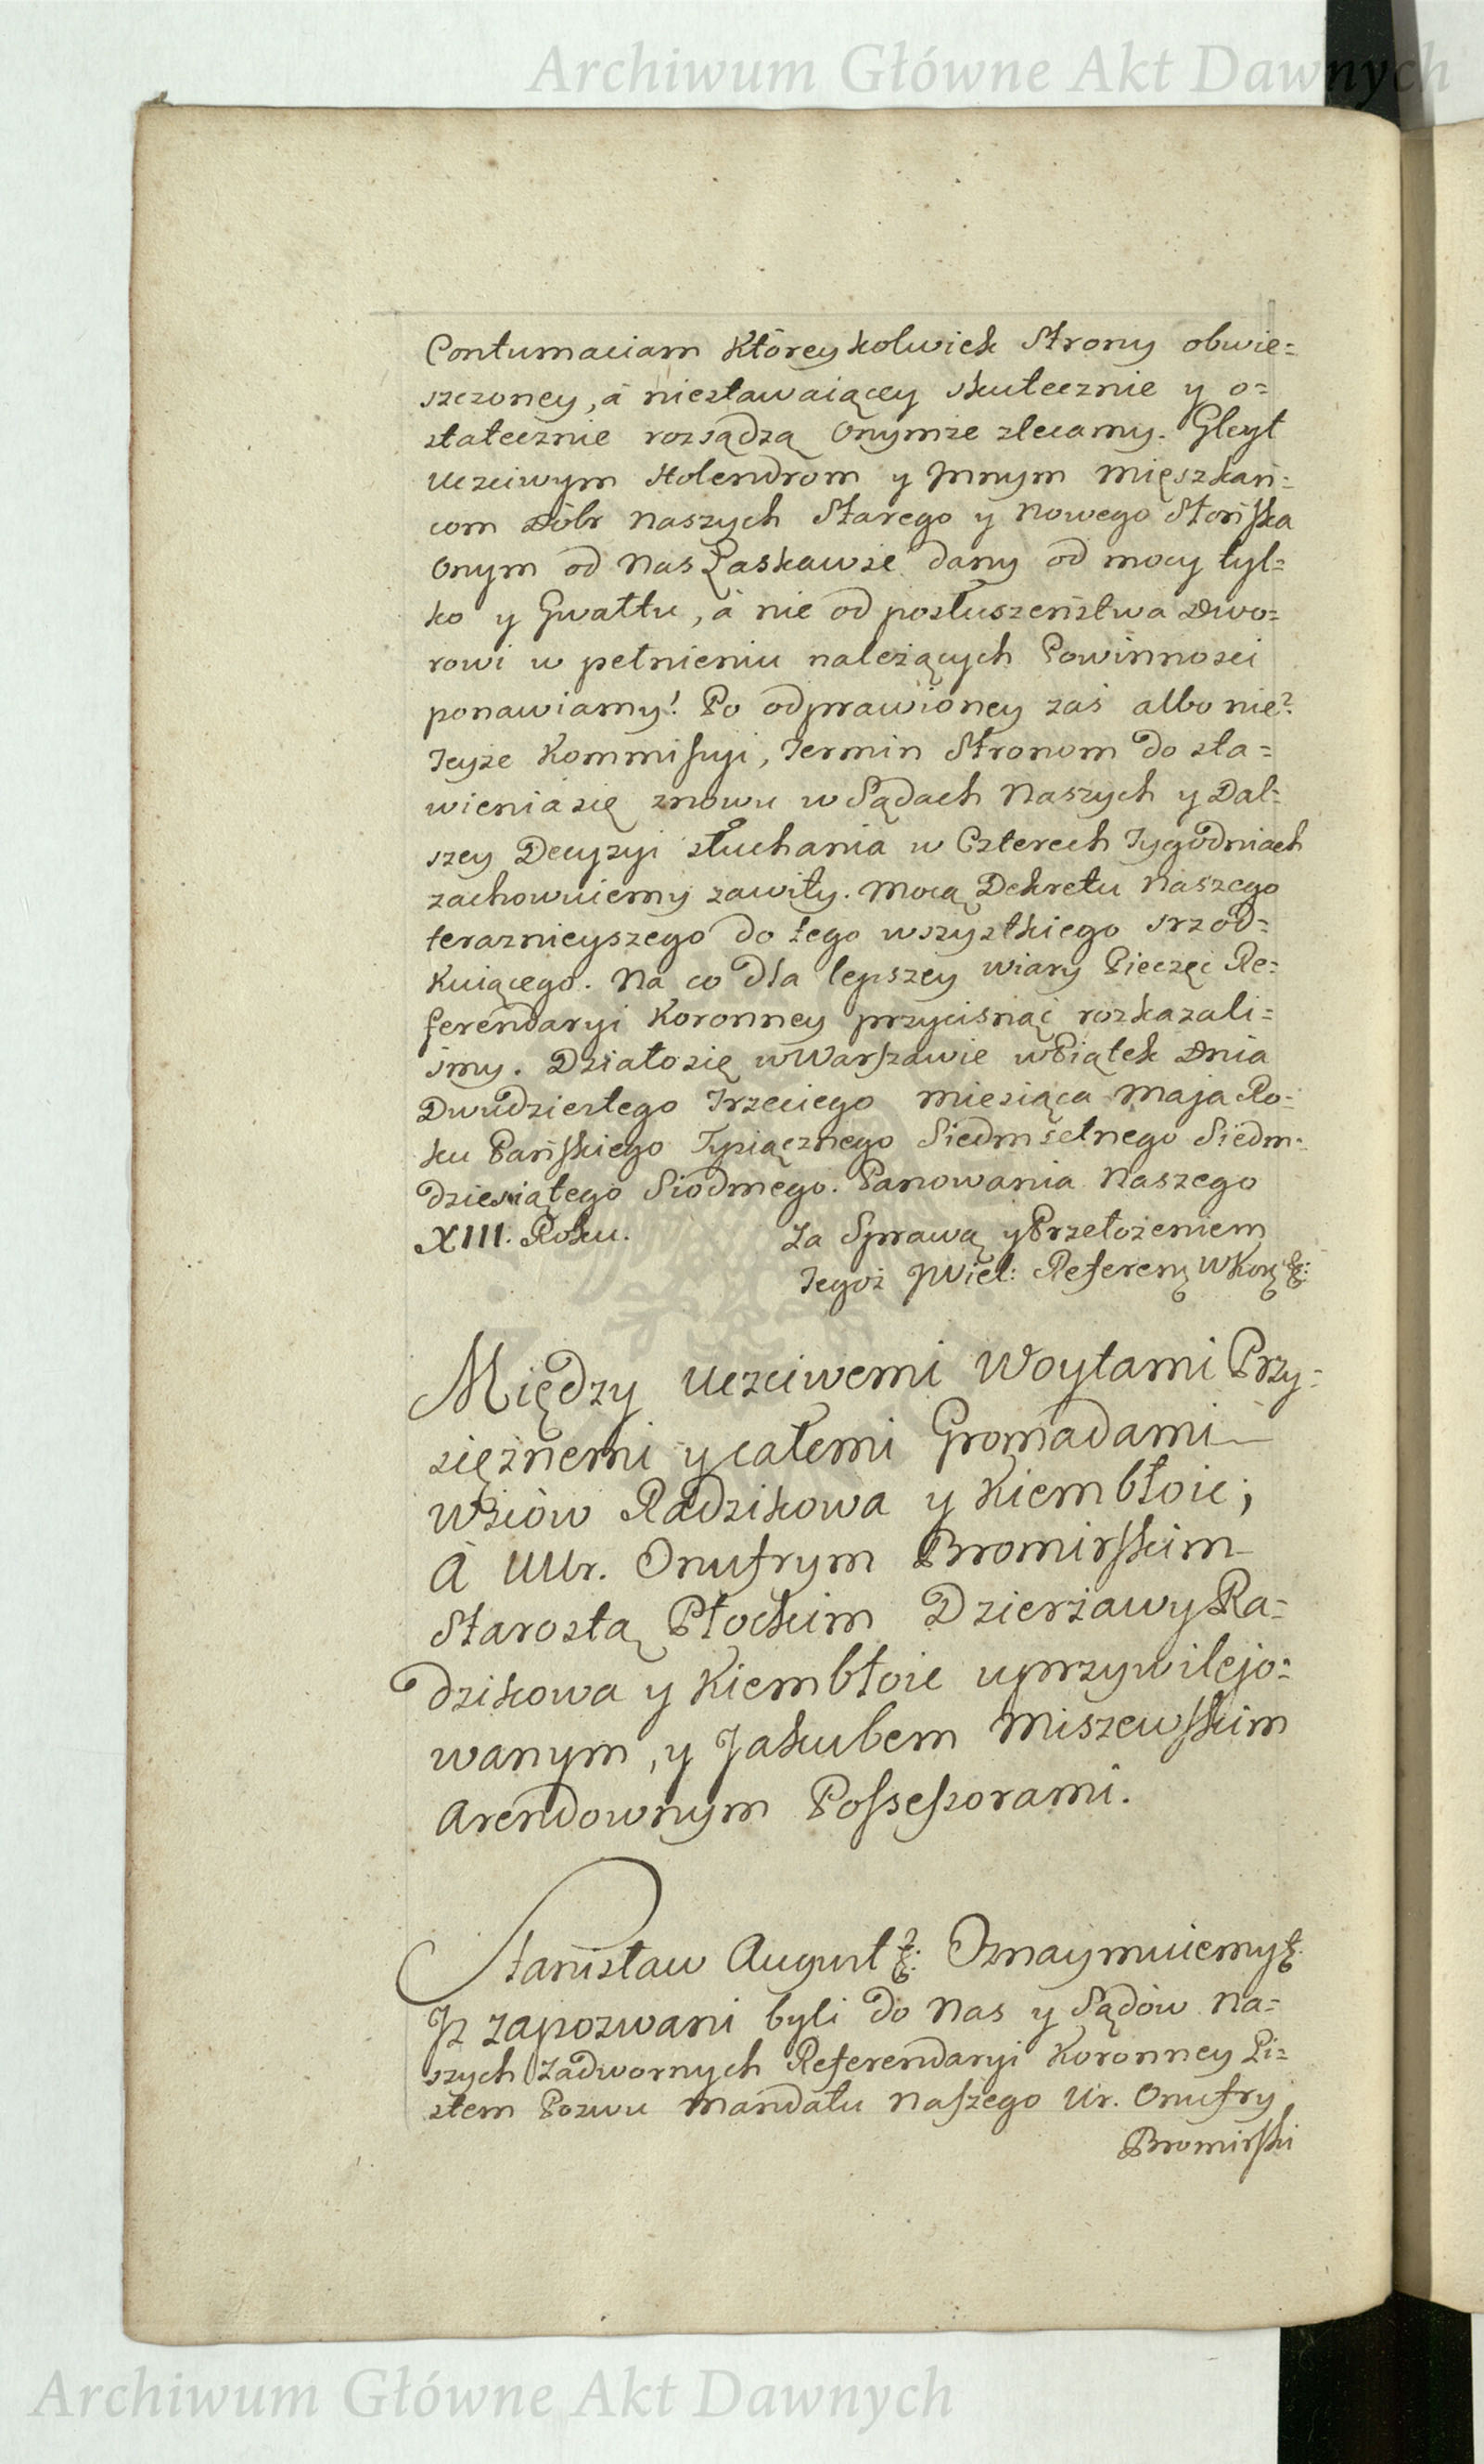 Archiwum Główne Akt Dawnych
Contumaciam Którey kolwiek Strony obwie=
szczoney, á niestawaiącey skutecznie y o=
statecznie rozsądzą Onymże zlecamy. Gleyt
Uczciwym Holendrom y Jnnym Mięszkań=
com Dóbr Naszych Starego y Nowego Słońska
Onym od Nas Łaskawie dany od mocy tyl=
ko y Gwałtu, á nie od posłuszeństwa Dwo=
rowi w pełnieniu należących Powinności
ponawiamy! Po odprawioney zaś albo nie?
Teyże Kommissyi, Termin Stronom do sta=
wienia się znowu w Sądach Naszych y Dal=
szey Decyzyi słuchania w Czterech Tygodniach
zachowuiemy zawity. Mocą Dekretu Naszego
teraznieyszego do tego wszystkiego srzod=
kuiącego. Na co dla lepszey wiary Pieczęć Re=
ferendaryi Koronney przycisnąć rozkazali=
śmy. Działo się w Warszawie w Piątek Dnia
Dwudziestego Trzeciego Miesiąca Maja Ro=
ku Pańskiego Tysiącznego Siedmsetnego Siedm=
dziesiątego Siodmego. Panowania Naszego
XIII. Roku. Za Sprawą y Przełożeniem
Tegoż JWiel: Referen: WKor: &:
Między Uczciwemi Woytami Przy=
sięznemi y całemi Gromadami
Wsiów Radzikowa y Kiembłoie;
A UUr. Onufrym Bromirskim
Starostą Płockim Dzierżawy Ra=
dzikowa y Kiembłoie uprzywilejo=
wanym, y Jakubem Miszewskim
Arendownym Possessorami.
Stanisław August &: Oznaymuiemy &.
Jż zapozwani byli do Nas y Sądów Na=
szych Zadwornych Referendaryi Koronney Li=
stem Pozwu Mandatu Naszego Ur. Onufry
Bromirski
Archiwum Główne Akt Dawnych